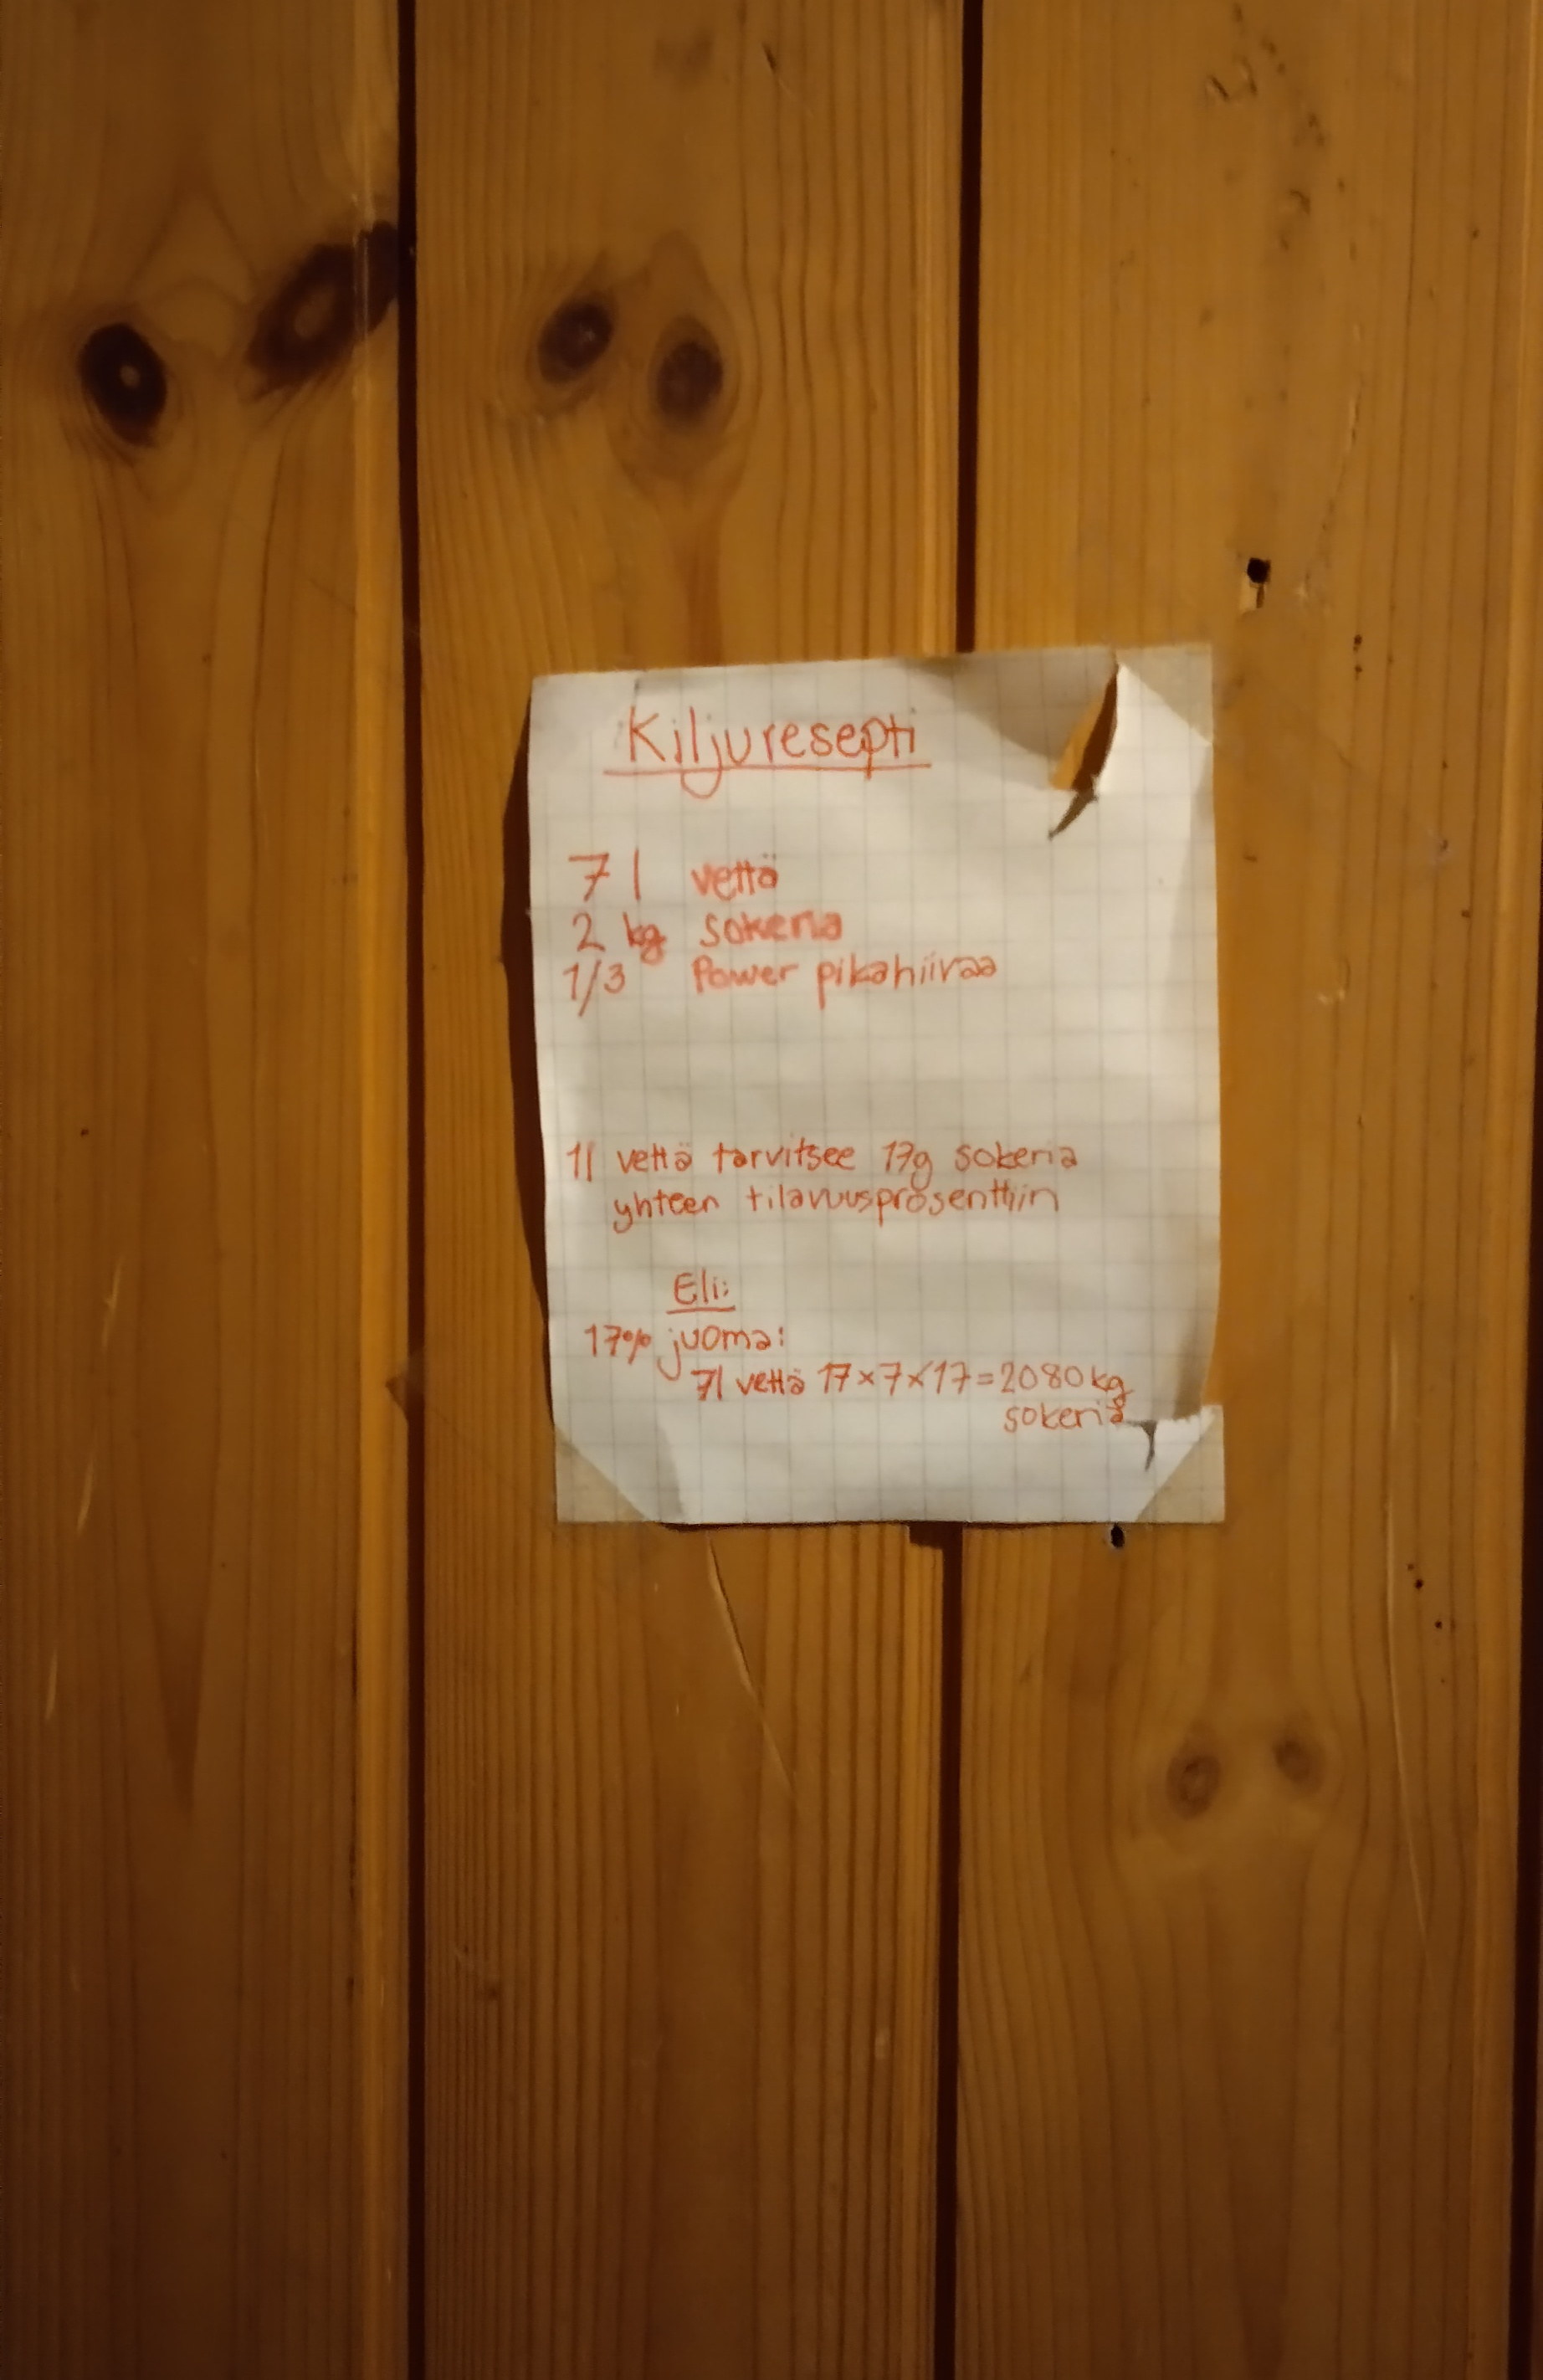 Kiljuresepti
7 l vettä
2 kg sokeria
1/3 Power pikahiivaa
1l vettä tarvitsee 17g sokeria
yhteen tilavuusprosenttiin
Eli:
17% juoma:
7l vettä 17×7×17=2080kg
sokeria